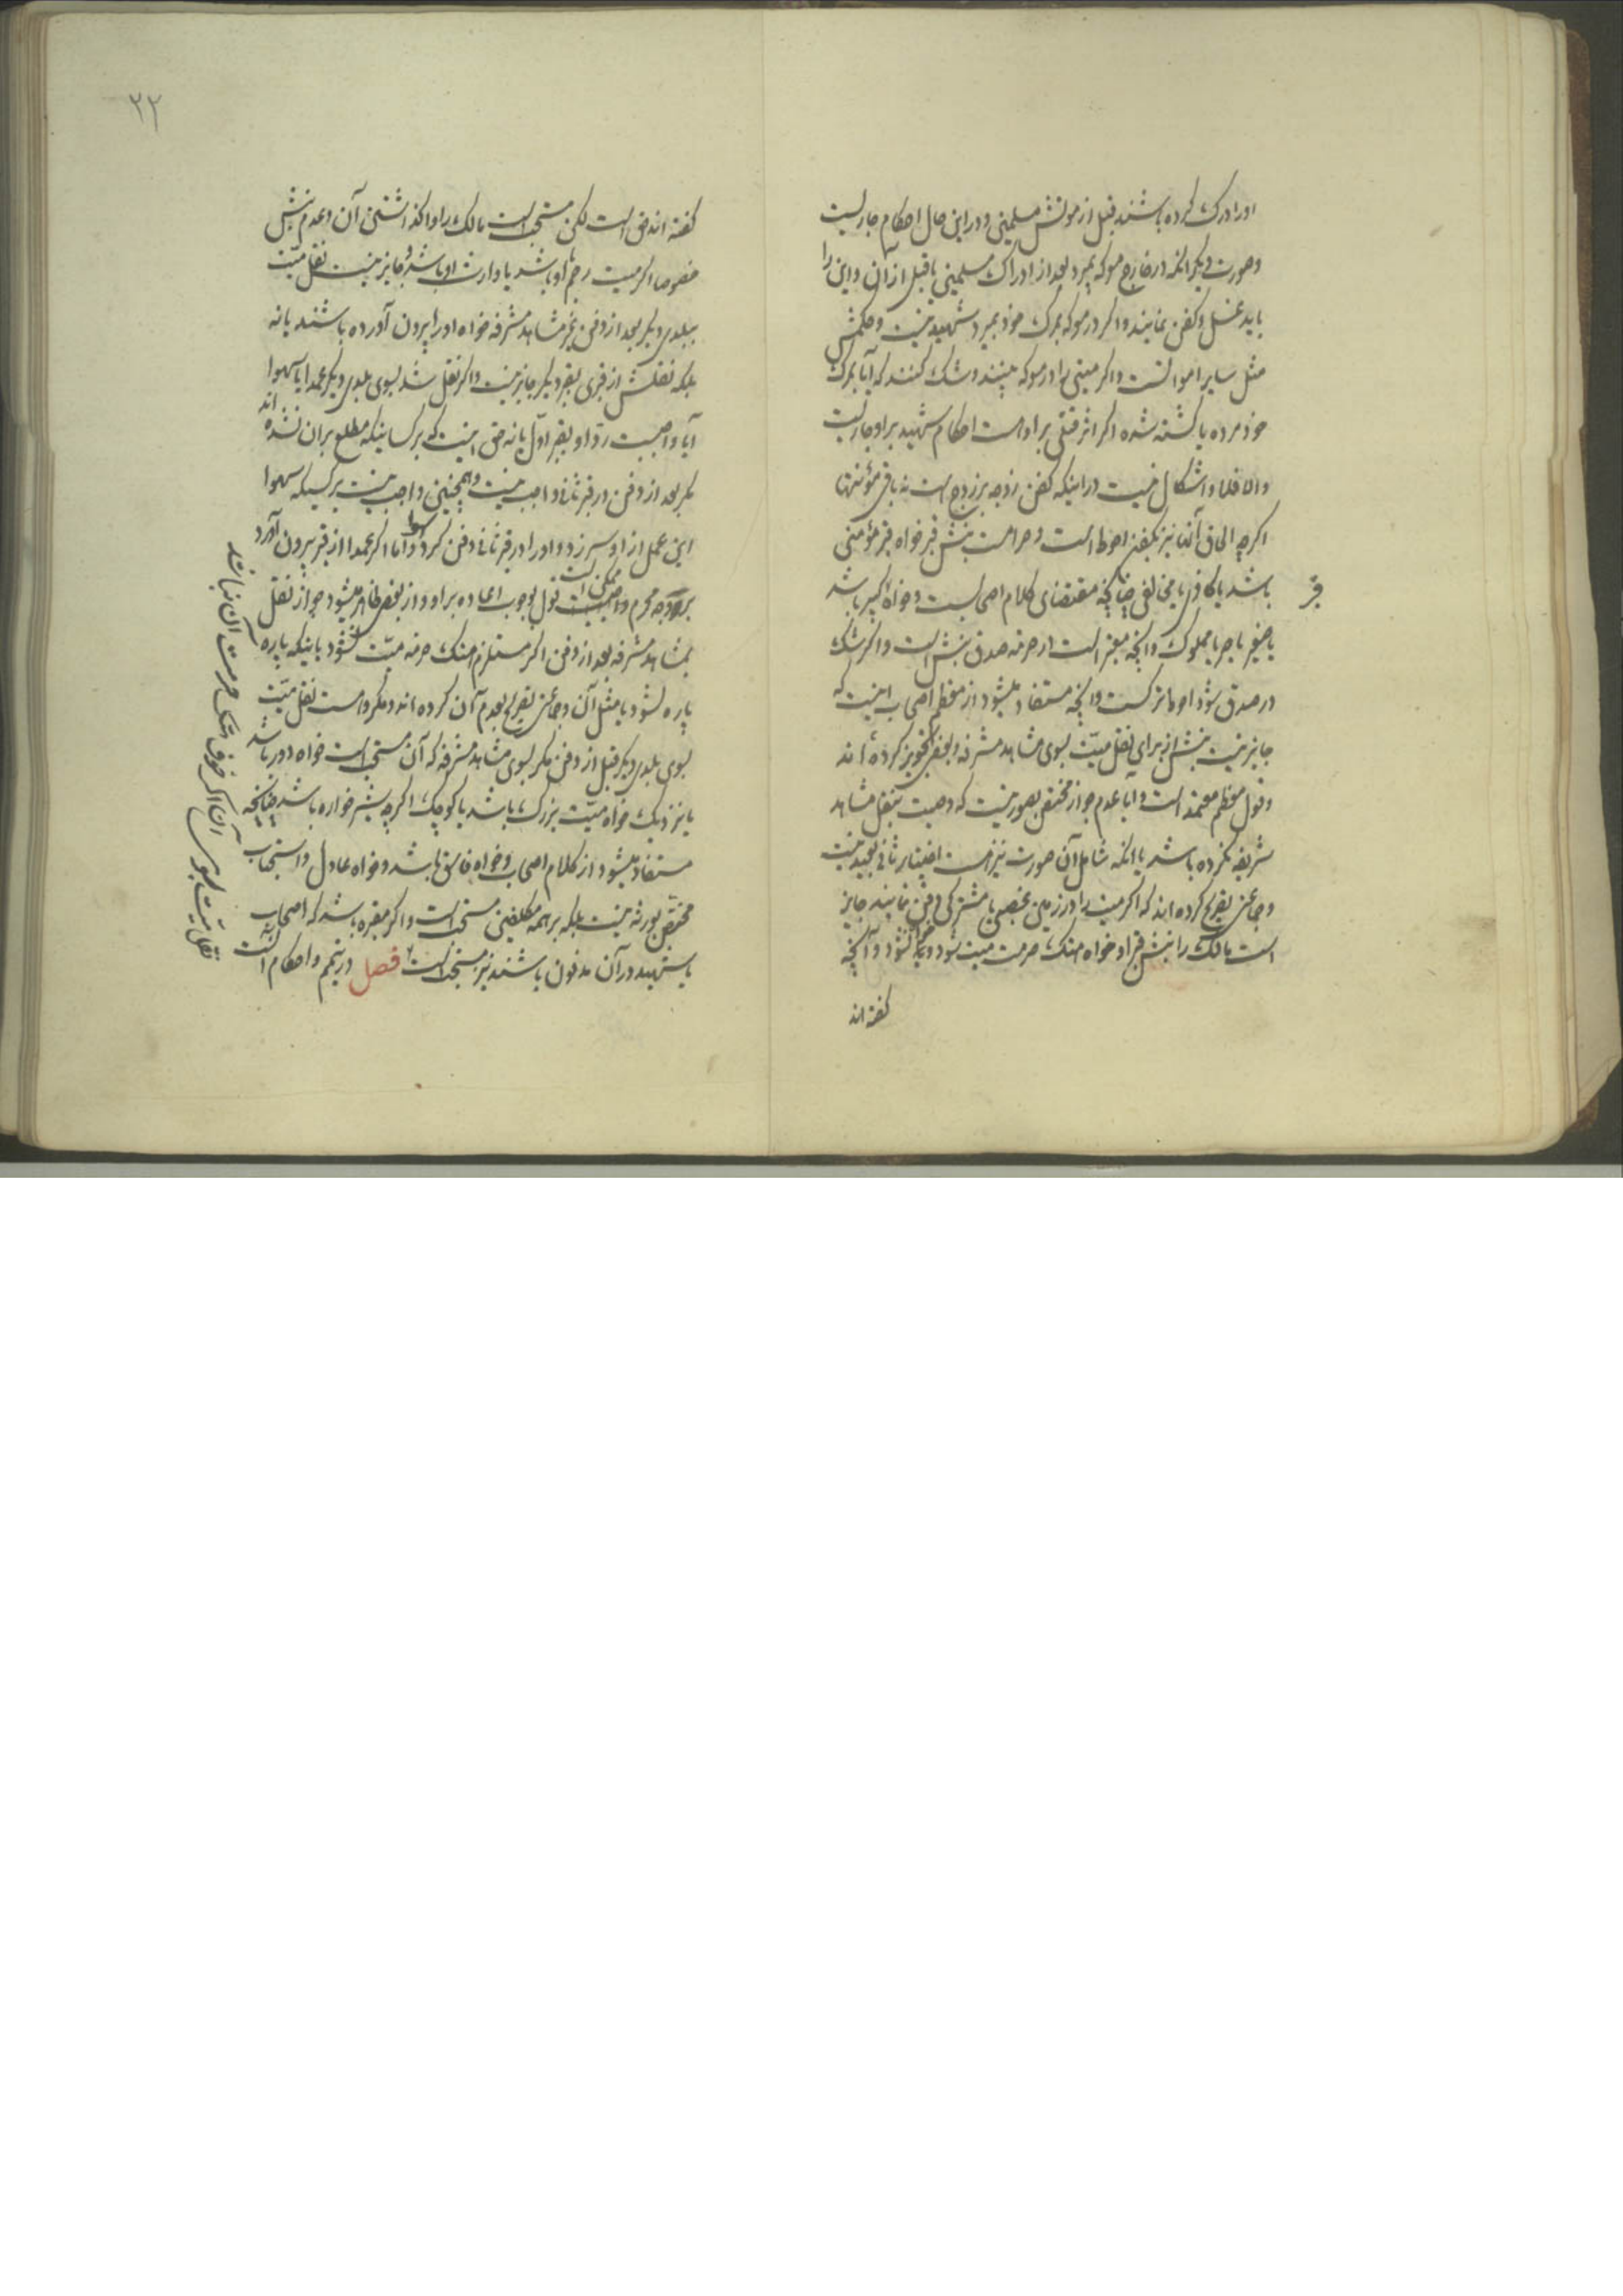 او را درک کرده باشند قبل از موتش مسلمین و در این حال احکام جاریست
و صورت دیگر آنکه در خارج معرکه بمیرد بعد از ادراک مسلمین یا قبل از آن و این را
باید غسل و کفن نمایند و اگر در معرکه بمرک خود بمیرد شهید نیست و حکمش
مثل سایر امواتست و اگر میتی را در معرکه ببینند و شک کنند که آیا بمرک
خود مرده یا کشته شده اگر اثر قتلی بر او است احکام شهید بر او جاریست
والا فلا و اشکال نیست در اینکه کفن زوجه بر زوج است نه باقی مؤنتها
اگرچه الحاق آنها نیز بکفن احوط است و حرامست نبش قبر خواه قبر مؤمنی
باشد یا کافری یا مخالفی چنانچه مقتضای کلام اصحابست و خواه کبیر باشد
قبر
یا صغیر یا حر یا مملوک و آنچه معتبر است در حرمة صدق نبش است و اگر شک
در صدق شود احوط ترکست و آنچه مستفاد میشود از معظم اصحاب اینست که
جایز نیست نبش از برای نقل میّت بسوی مشاهد مشرفه و بعضی تجویز کرده اند
و قول معظم معتمد است و آیا عدم جواز مختص بصورتیست که وصیت بنقل مشاهد
شریفه نکرده باشد یا آنکه شامل آن صورت نیز هست اختیار ثانی بعید نیست
و جماعتی تصریح کرده اند که اگر میت را در زمین غصبی یا مشترکی دفن نمایند جایز
است مالک را نبش قبر او خواه هتک حرمت میت شود و خواه نشود و آنچه
گفته اند
۲۲
گفته اند حق است لکن مستحب است مالک را واگذاشتن آن و عدم نبش
خصوصا اگر میت رحم او باشد یا وارث او باشد و جایز نیست نقل میّت
ببلدی دیگر بعد از دفن بغیر مشاهد مشرفه خواه او را بیرون آورده باشند یا نه
بلکه نقلش از قبری بقبر دیگر جایز نیست و اگر نقل شد بسوی بلدی دیگر عمدا یا سهوا
آیا واجبست رد او بقبر اوّل یا نه حق اینست که بر کسانیکه مطلع بران نشده اند
مگر بعد از دفن در قبر ثانی واجب نیست و همچنین واجب نیست بر کسیکه سهوا
این عمل از او سر زد و او را در قبر ثانی دفن کرد سهوا و اما اگر عمدا از قبر بیرون آورد
بر وجه محرم ممکن است قول بوجوب اعاده بر او و از بعضی ظاهر میشود جواز نقل
بمشاهد مشرفه بعد از دفن اگر مستلزم هتک حرمة میّت نشود باینکه پاره
پاره نشود یا مثل آن و جماعتی تصریح بعدم آن کرده اند و مکروهست نقل میّت
بسوی بلدی دیگر قبل از دفن مگر بسوی مشاهد مشرفه که آن مستحب است خواه دور باشد
یا نزدیک خواه میّت بزرک باشد یا کوچک اگرچه شیرخواره باشد چنانچه
مستفاد میشود از کلام اصحاب و خواه فاسق باشد و خواه عادل و استحباب
مختص بورثه نیست بلکه بر همه مکلفین مستحب است و اگر مقبره باشد که اصحاب
یا شهید در آن مدفون باشند نیز مستحب است فصل در تیمم و احکام آنست
نقل میّت بسوی آن اگر خوف هتک حرمت آن نباشد